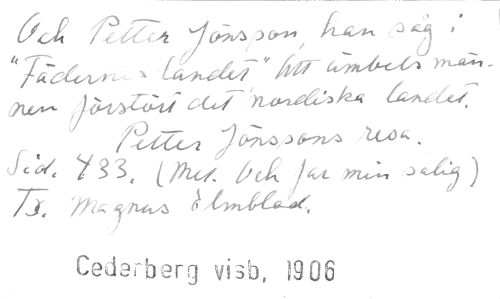 Och Petter Jönsson, han såg i
"Fäderneslandet" att ämbetsmän-
nen förstört det nordiska landet.
Petter Jönssons resa.
Sid. 433. (Mel. Och far min salig)
Tr. Magnus Elmblad.
Cederberg visb, 1906